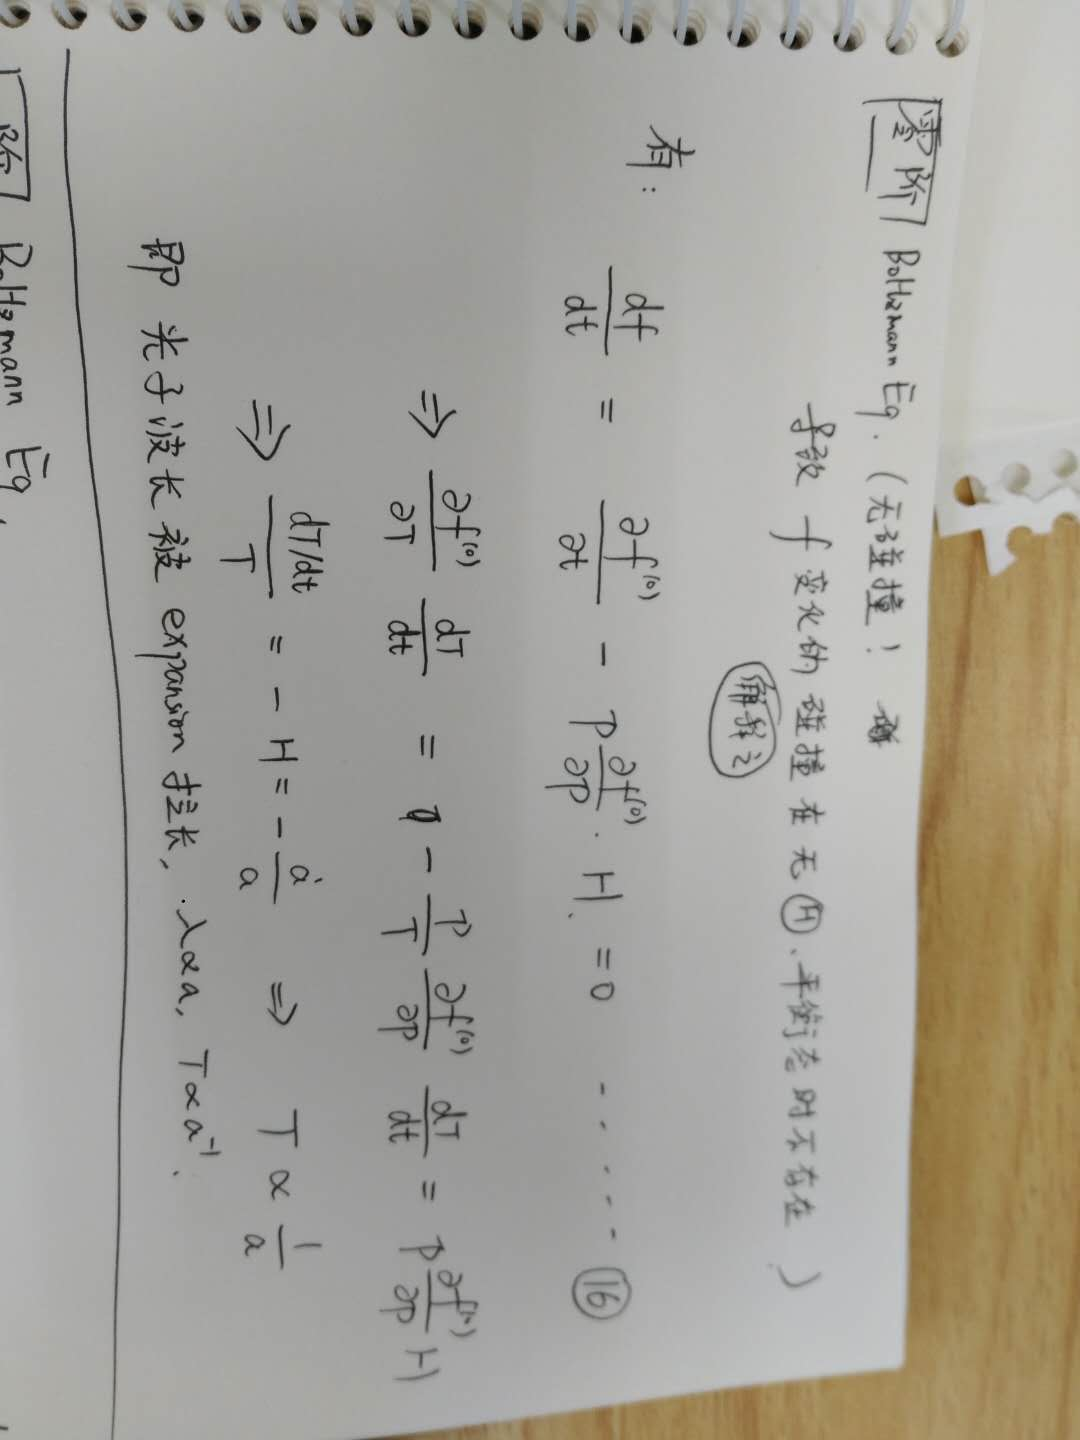 零阶 Boltzmann Eq. (无碰撞!
导致 f 变化的 碰撞 在 无 Ⓗ、平衡态时不存在 )
解释之
有: df/dt = ∂f⁽⁰⁾/∂t − P ∂f⁽⁰⁾/∂P · H = 0 ······ ⑯
⇒ ∂f⁽⁰⁾/∂T dT/dt = − P/T ∂f⁽⁰⁾/∂P dT/dt = P ∂f⁽⁰⁾/∂P H
⇒ (dT/dt)/T = − H = − ȧ/a ⇒ T ∝ 1/a
即 光子波长被 expansion 拉长, λ∝a, T∝a⁻¹.
阶 Boltzmann Eq.